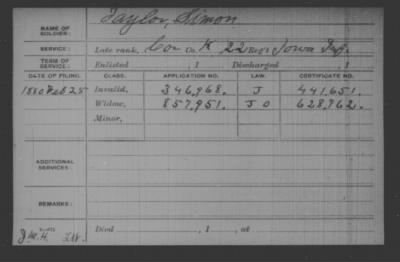 NAME OF SOLDIER: Taylor, Simon
SERVICE: Late rank, Cor Co. K, 22 Reg't Iowa Inf.
TERM OF SERVICE: Enlisted , 1 Discharged , 1
DATE OF FILING. CLASS. APPLICATION NO. LAW. CERTIFICATE NO.
1880 Feb 25 Invalid, 346,968. J 441,651.
Widow, 857,951. J O 628,862.
Minor,
ADDITIONAL SERVICES:
REMARKS:
Died , 1 , at